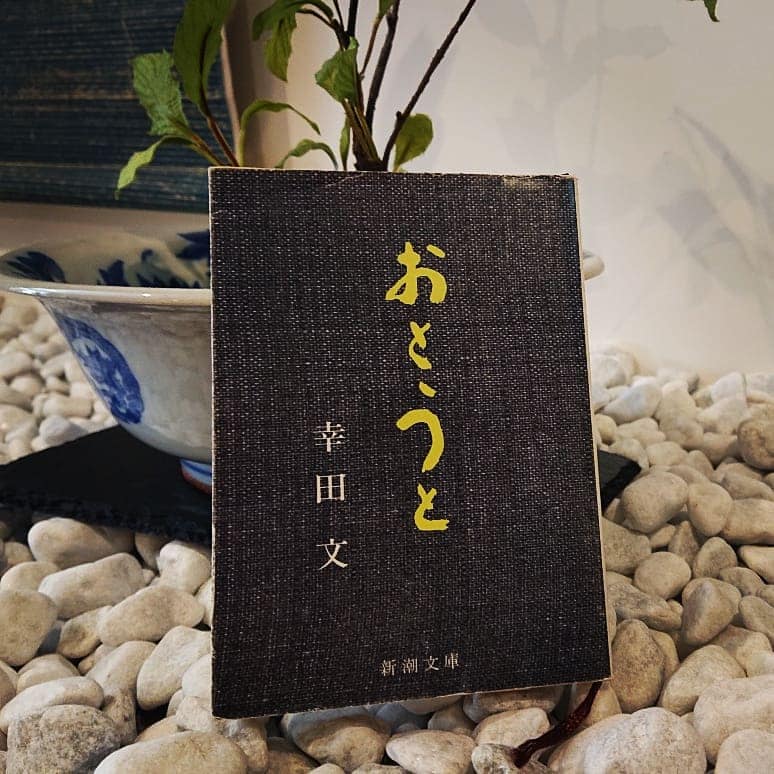 おとうと
幸田文
新潮文庫